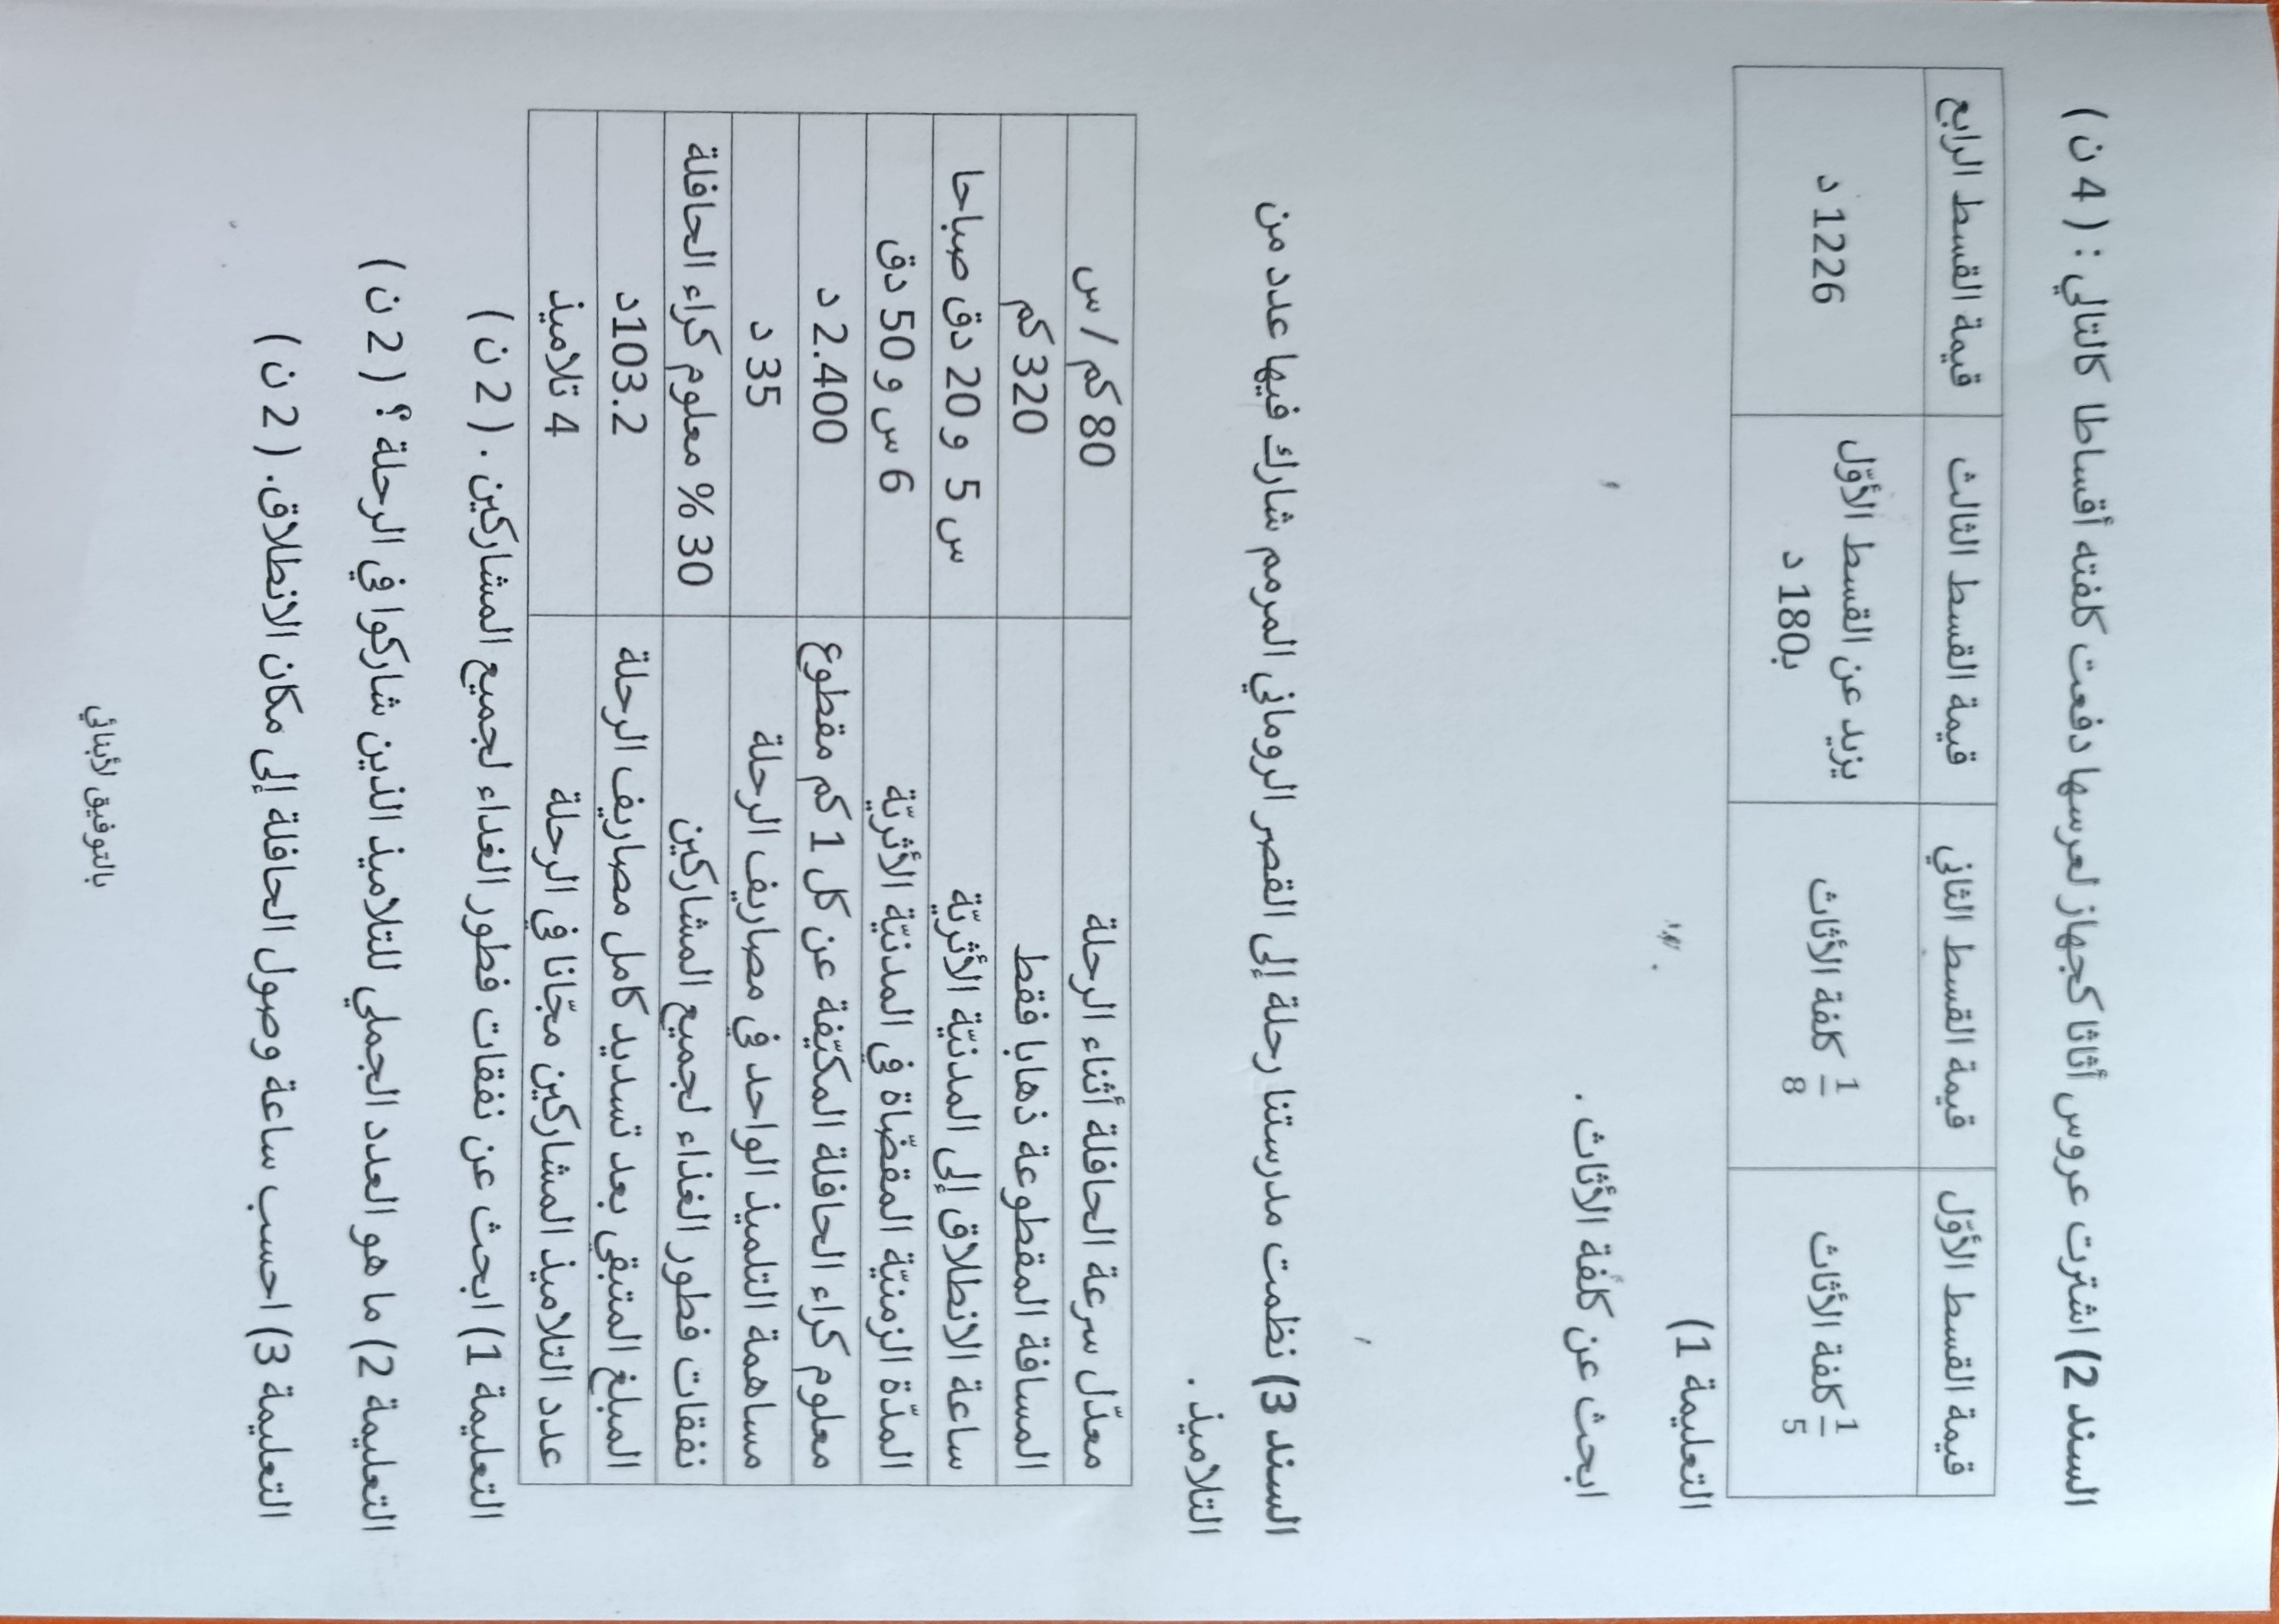 السند 2) اشترت عروس أثاثا كجهاز لعرسها دفعت كلفته أقساطا كالتالي : ( 4 ن )
قيمة القسط الأوّل قيمة القسط الثاني قيمة القسط الثالث قيمة القسط الرابع
1/5 كلفة الأثاث 1/8 كلفة الأثاث يزيد عن القسط الأوّل ب180 د 1226 د
التعليمة 1)
ابحث عن كلفة الأثاث .
السند 3) نظمت مدرستنا رحلة إلى القصر الروماني المرمم شارك فيها عدد من
التلاميذ .
معدّل سرعة الحافلة أثناء الرحلة 80 كم / س
المسافة المقطوعة ذهابا فقط 320 كم
ساعة الانطلاق إلى المدنيّة الأثريّة س 5 و 20 دق صباحا
المدّة الزمنيّة المقضّاة في المدنيّة الأثريّة 6 س و 50 دق
معلوم كراء الحافلة المكيّفة عن كل 1 كم مقطوع 2.400 د
مساهمة التلميذ الواحد في مصاريف الرحلة 35 د
نفقات فطور الغذاء لجميع المشاركين 30 % معلوم كراء الحافلة
المبلغ المتبقي بعد تسديد كامل مصاريف الرحلة 103.2د
عدد التلاميذ المشاركين مجّانا في الرحلة 4 تلاميذ
التعليمة 1) ابحث عن نفقات فطور الغداء لجميع المشاركين . ( 2 ن )
التعليمة 2) ما هو العدد الجملي للتلاميذ الذين شاركوا في الرحلة ؟ ( 2 ن )
التعليمة 3) احسب ساعة وصول الحافلة إلى مكان الانطلاق. ( 2 ن )
بالتوفيق لأبنائي